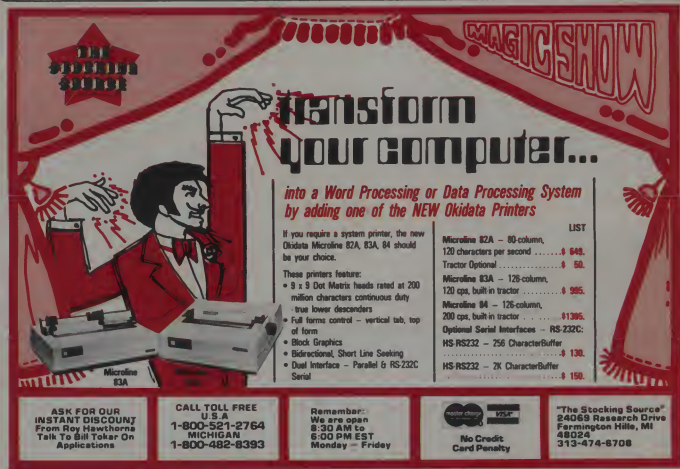 THE
STOCKING
SOURCE
MAGIC SHOW
transform
your computer...
into a Word Processing or Data Processing System
by adding one of the NEW Okidata Printers
If you require a system printer, the new
Okidata Microline 82A, 83A, 84 should
be your choice.
These printers feature:
• 9 x 9 Dot Matrix heads rated at 200
million characters continuous duty
true lower descenders
• Full forms control – vertical tab, top
of form
• Block Graphics
• Bidirectional, Short Line Seeking
• Dual Interface – Parallel & RS-232C
Serial
LIST
Microline 82A – 80-column,
120 characters per second .......$ 649.
Tractor Optional ....................$ 50.
Microline 83A – 126-column,
120 cps, built-in tractor ..........$ 995.
Microline 84 – 126-column,
200 cps, built-in tractor ..........$1395.
Optional Serial Interfaces – RS-232C:
HS-RS232 – 256 CharacterBuffer
..............................$ 130.
HS-RS232 – 2K CharacterBuffer
..............................$ 150.
Microline
83A
ASK FOR OUR
INSTANT DISCOUNT
From Roy Hawthorne
Talk To Bill Tokar On
Applications
CALL TOLL FREE
U.S.A
1-800-521-2764
MICHIGAN
1-800-482-8393
Remember:
We are open
8:30 AM to
6:00 PM EST
Monday – Friday
master charge
VISA
No Credit
Card Penalty
"The Stocking Source"
24069 Research Drive
Farmington Hills, MI
48024
313-474-6708